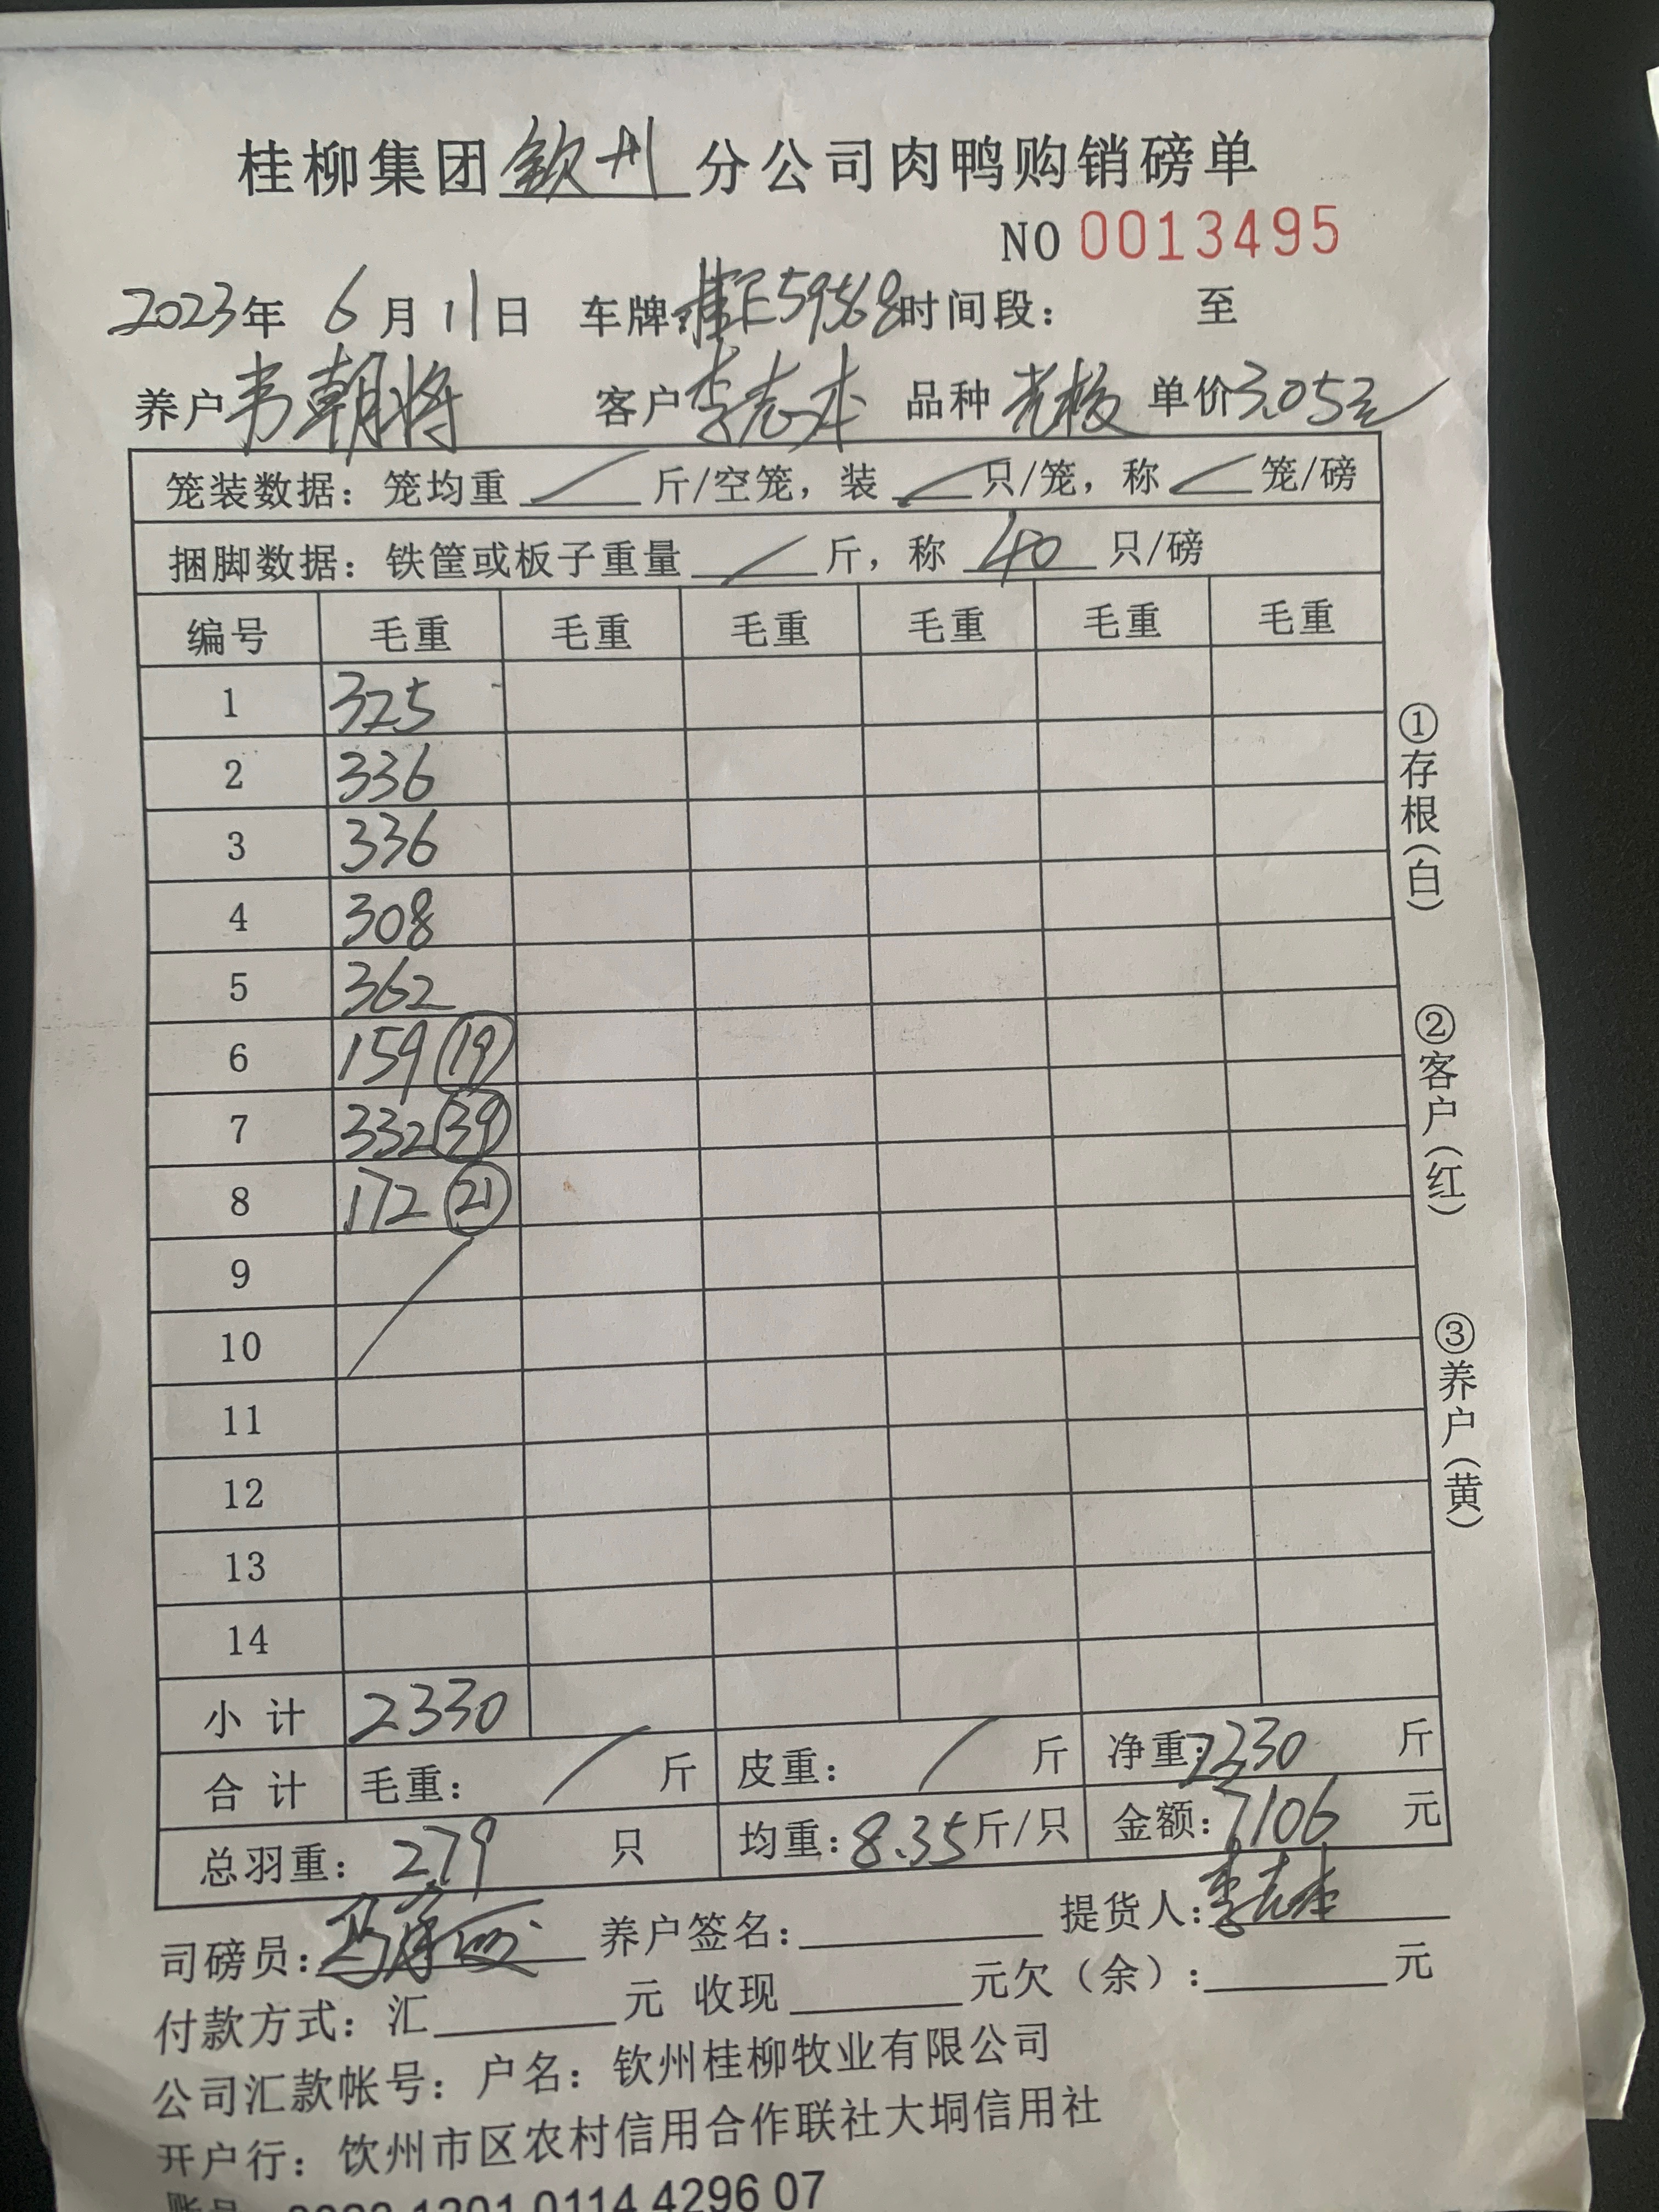 桂柳集团钦州分公司肉鸭购销磅单
NO 0013495
2023年 6月11日 车牌桂E59568时间段： 至
养户韦朝将 客户李志本 品种 单价3.05元
笼装数据：笼均重 斤/空笼，装 只/笼，称 笼/磅
捆脚数据：铁筐或板子重量 斤，称 40 只/磅
编号 毛重 毛重 毛重 毛重 毛重 毛重
1 325
2 336
3 336
4 308
5 362
6 159 19
7 332 39
8 172 21
9
10
11
12
13
14
小计 2330
合计 毛重： 斤 皮重： 斤 净重：2330 斤
总羽重：279 只 均重：8.35斤/只 金额：7106 元
司磅员： 养户签名： 提货人：李志本
付款方式：汇 元 收现 元欠（余）： 元
公司汇款帐号：户名：钦州桂柳牧业有限公司
开户行：钦州市区农村信用合作联社大垌信用社
1201 0114 4296 07
①存根（白）
②客户（红）
③养户（黄）